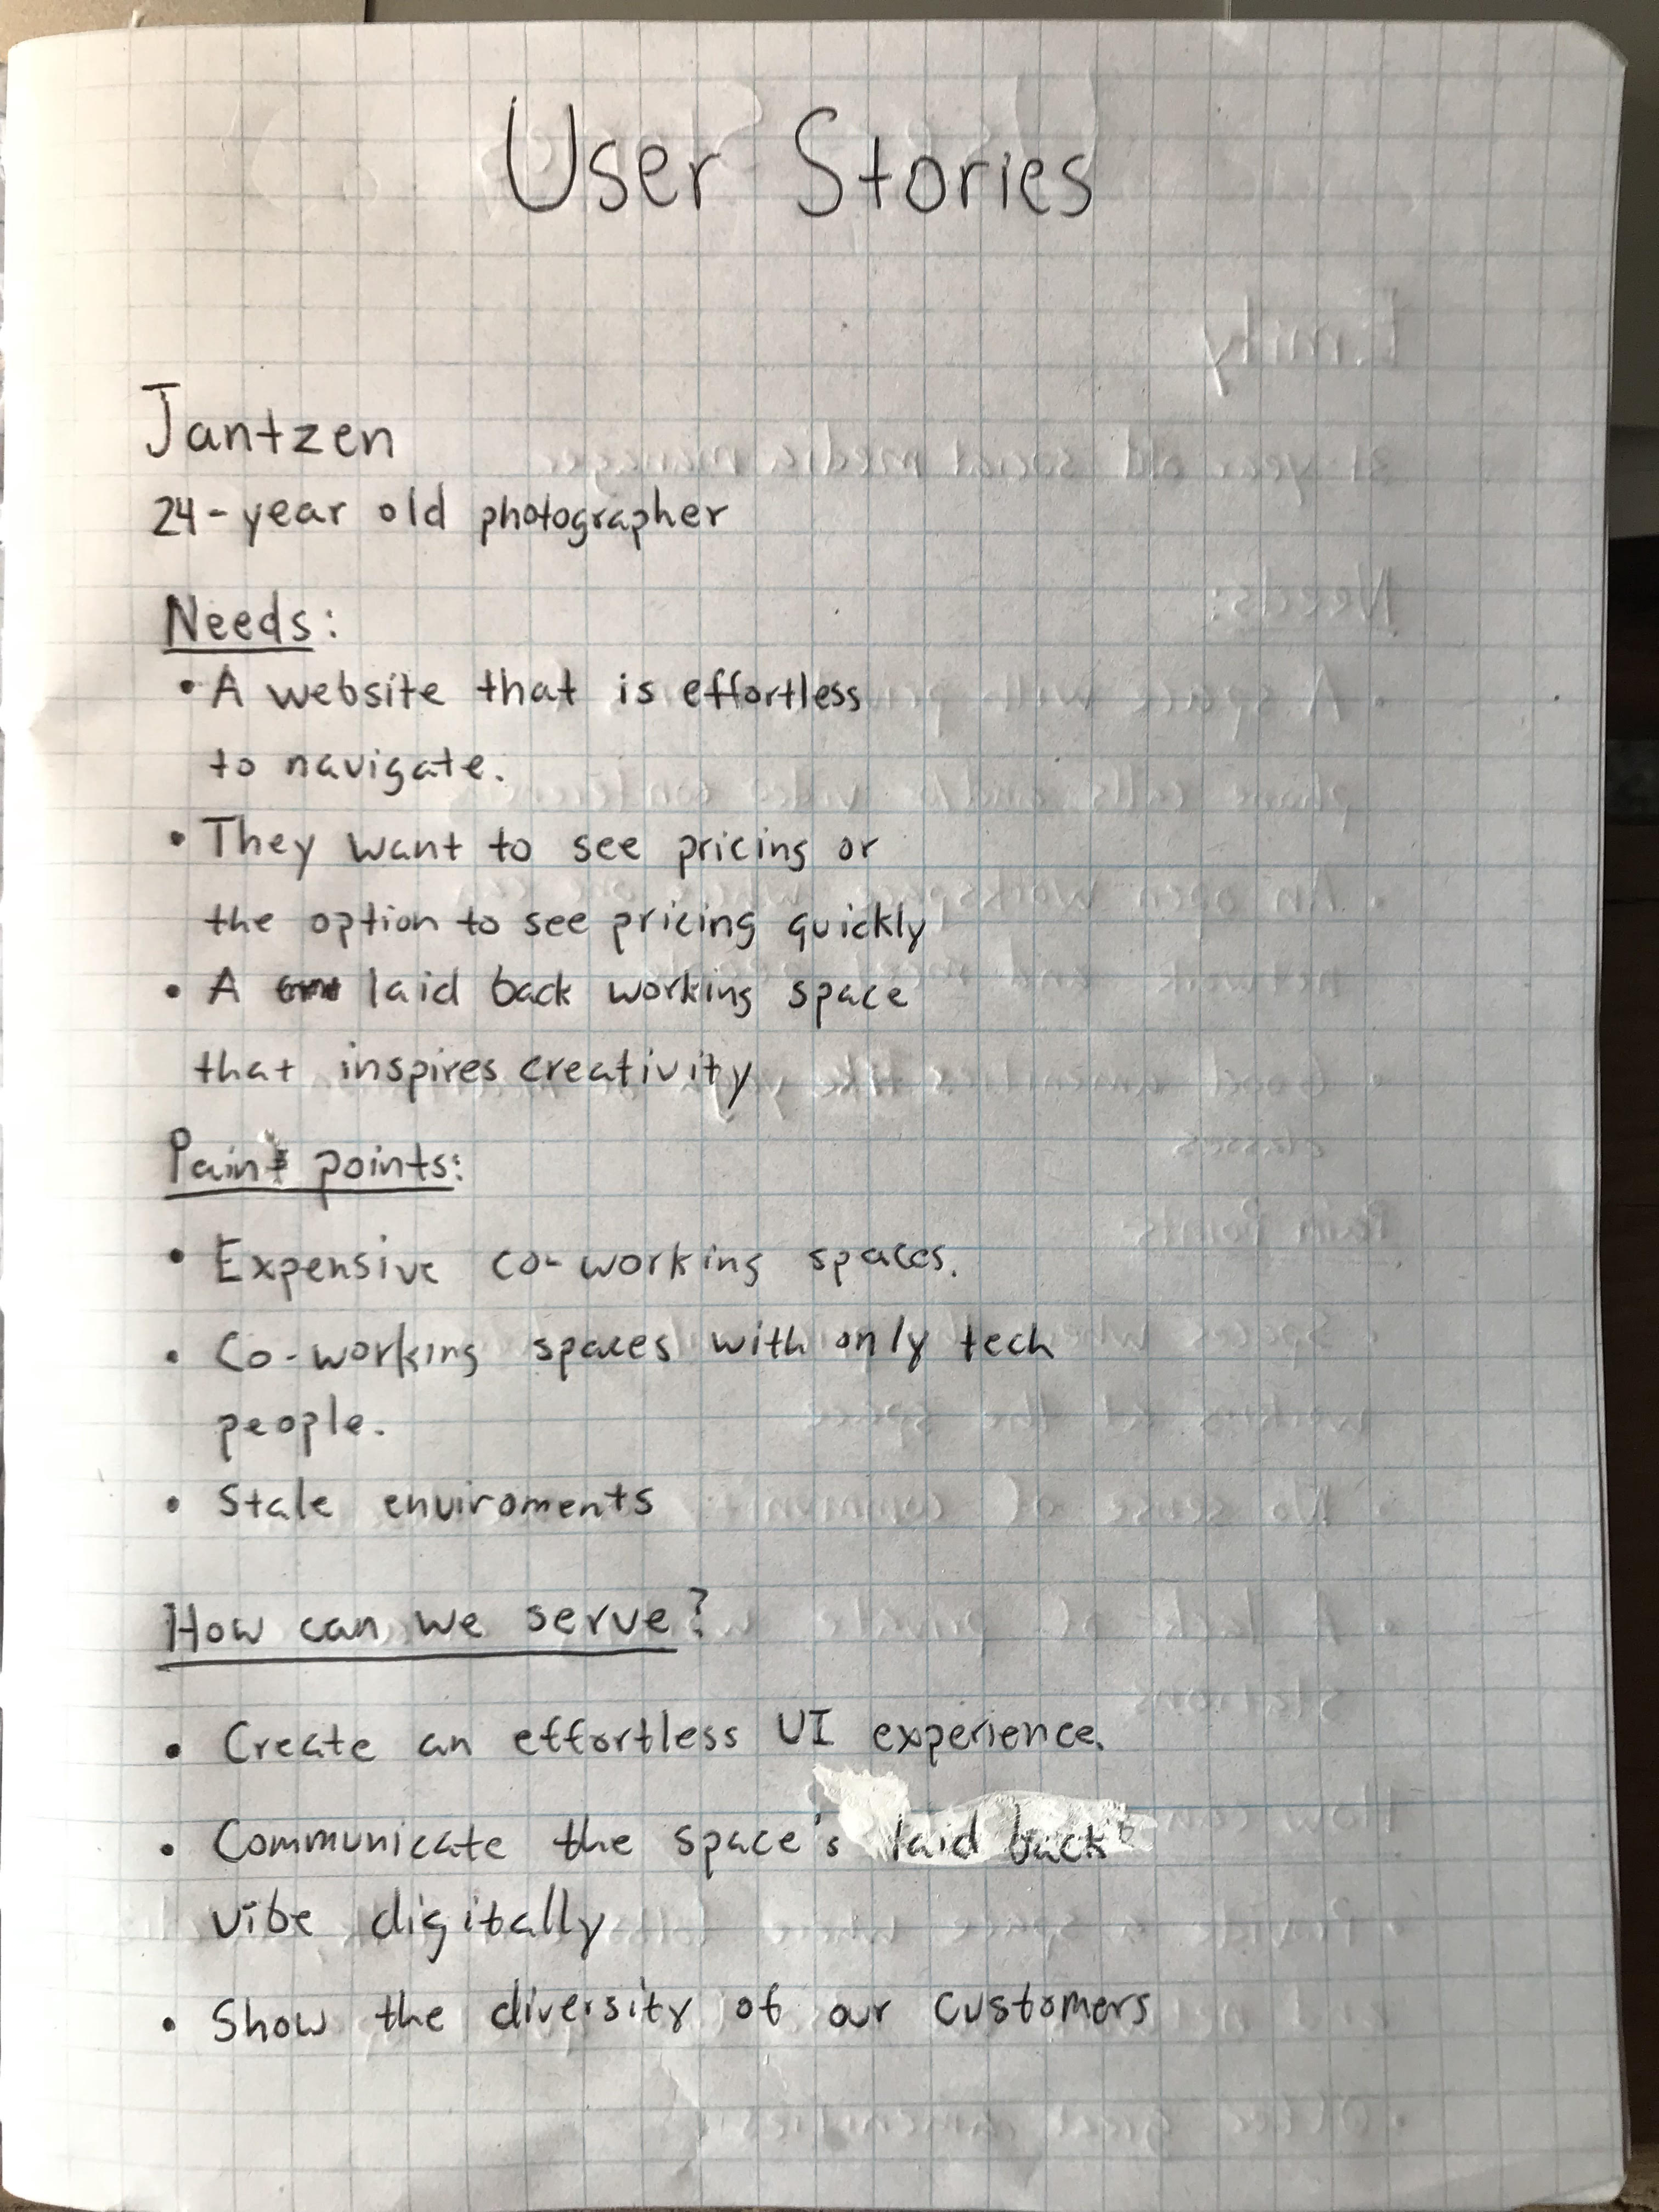 User Stories
Jantzen
24-year old photographer
Needs:
• A website that is effortless
to navigate.
• They want to see pricing or
the option to see pricing quickly
• A laid back working space
that inspires creativity
Pain points:
• Expensive co-working spaces.
• Co-working spaces with only tech
people.
• Stale enviroments
How can we serve?
• Create an effortless UI experience.
• Communicate the space's laid back
vibe digitally
• Show the diversity of our customers